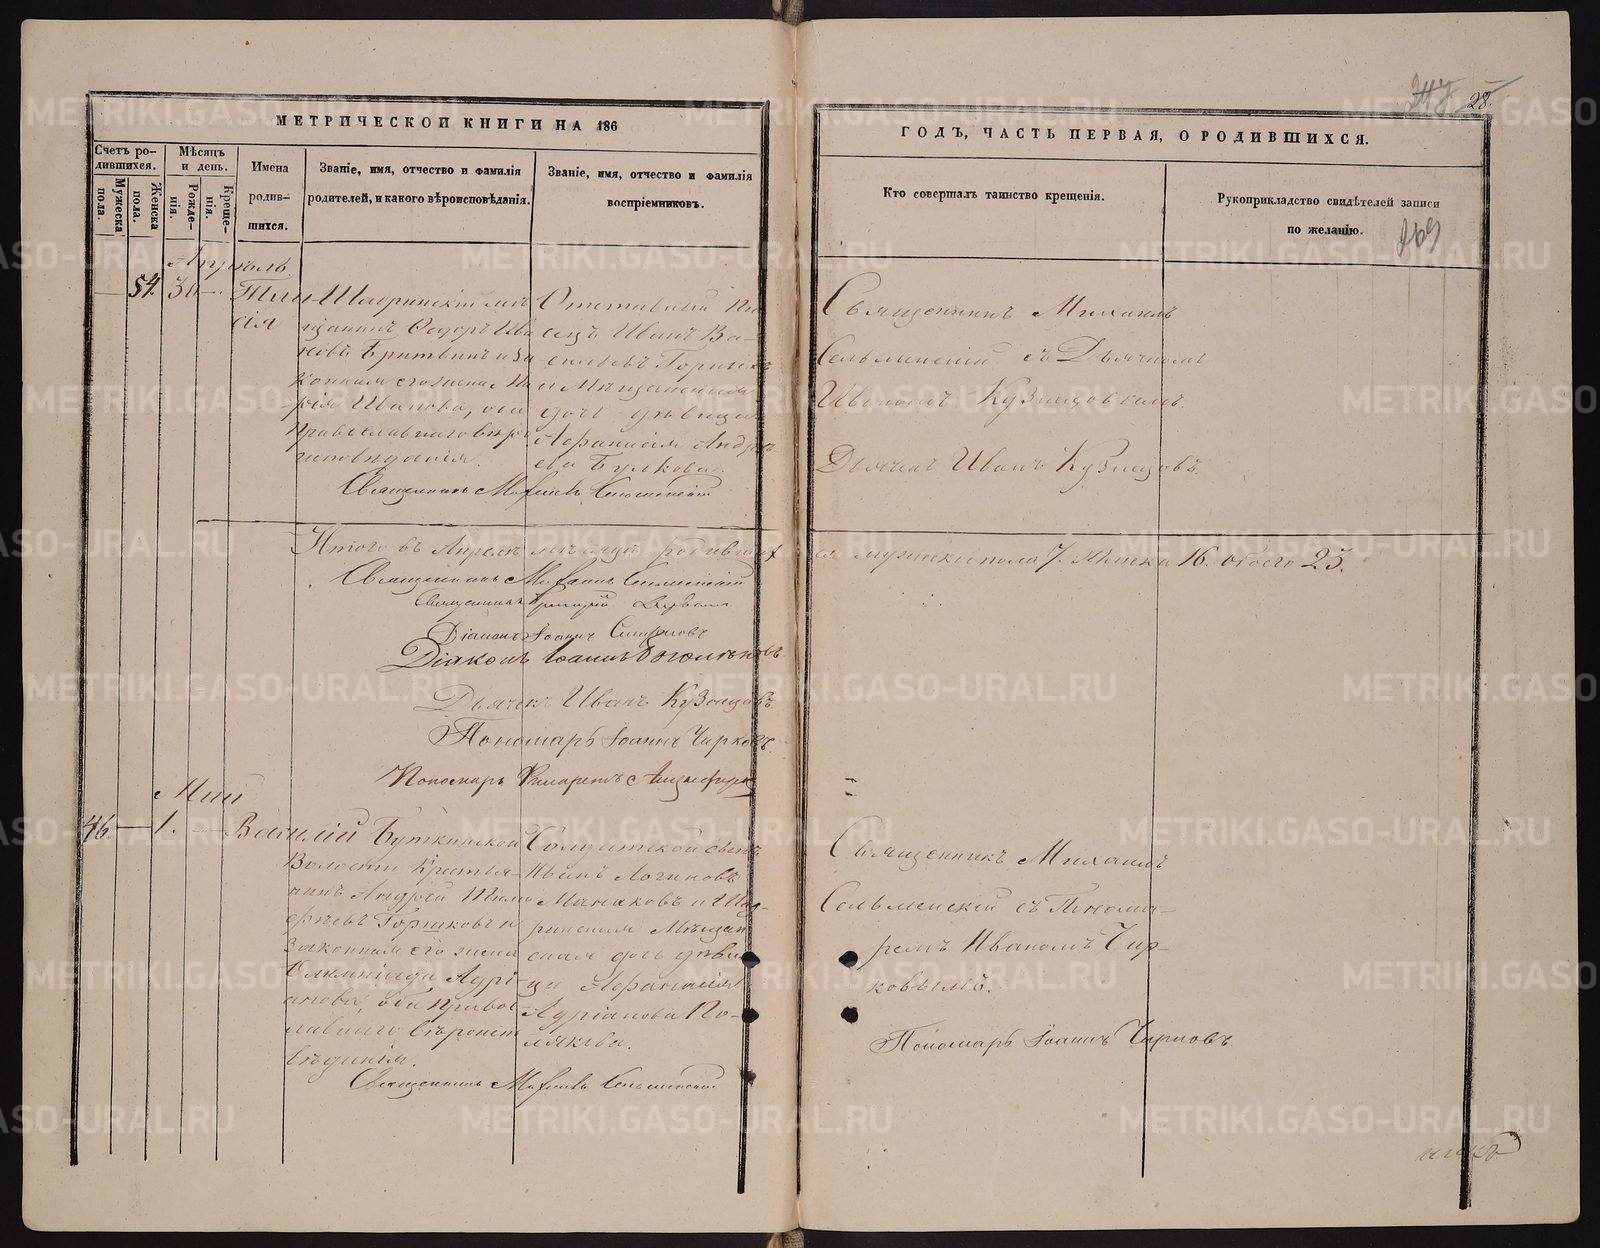 24
28.
МЕТРИЧЕСКОЙ КНИГИ НА 186
ГОДЪ, ЧАСТЬ ПЕРВАЯ, О РОДИВШИХСЯ.
Счетъ ро-
дившихся.
Мужеска
пола.
Женска
пола.
Мѣсяцъ
и день.
Рожде-
нія.
Креще-
нія.
Имена
родив-
шихся.
Званіе, имя, отчество и фамилія
родителей, и какого вѣроисповѣданія.
Званіе, имя, отчество и фамилія
воспріемниковъ.
Кто совершалъ таинство крещенія.
Рукоприкладство свидѣтелей записи
по желанію.
269
Апрѣль
54. 30
Таи-
сія
Шадринскій мѣ
щанинъ Ѳедоръ Ива
новъ Бритвинъ и за
конная его жена Ма
рія Иванова, оба
православнаго вѣро
исповѣданія.
Отставной
Иванъ Ва-
сильевъ
и Мѣщанская
дочь дѣвица
Афанасія Андре
ева Булкова.
Священникъ Михаилъ Сельменскій
Священникъ Михаилъ
Сельменскій съ Дьячкомъ
Иваномъ Кузнецовымъ.
Дьячекъ Иванъ Кузнецовъ.
Итого въ Апрѣлѣ мѣсяцѣ родивших
ся мужеска пола 7. Женска 16. обоего 23.
Священникъ Михаилъ Сельменскій
Священникъ Григорій
Діаконъ Іоаннъ Смирновъ
Діаконъ Іоаннъ
Дьячекъ Иванъ Кузнецовъ.
Пономарь Іоаннъ Чирковъ.
Пономарь Филаретъ
Май
46. 1.
Василій
Буткинской
Волости Крестья-
нинъ Андрей Тимо
фѣевъ Горшковъ и
законная его жена
Олимпіада Адрі-
анова, оба правос
лавнаго вѣроиспо
вѣданія.
Солдатской сынъ
Иванъ Логиновъ
Манаковъ и Шад-
ринская Мѣщан
ская дочь дѣви
ца Афанасія
Адріанова По-
лякова.
Священникъ Михаилъ Сельменскій
Священникъ Михаилъ
Сельменскій съ Понома-
ремъ Иваномъ Чир-
ковымъ.
Пономарь Іоаннъ Чирковъ
METRIKI.GASO-URAL.RU